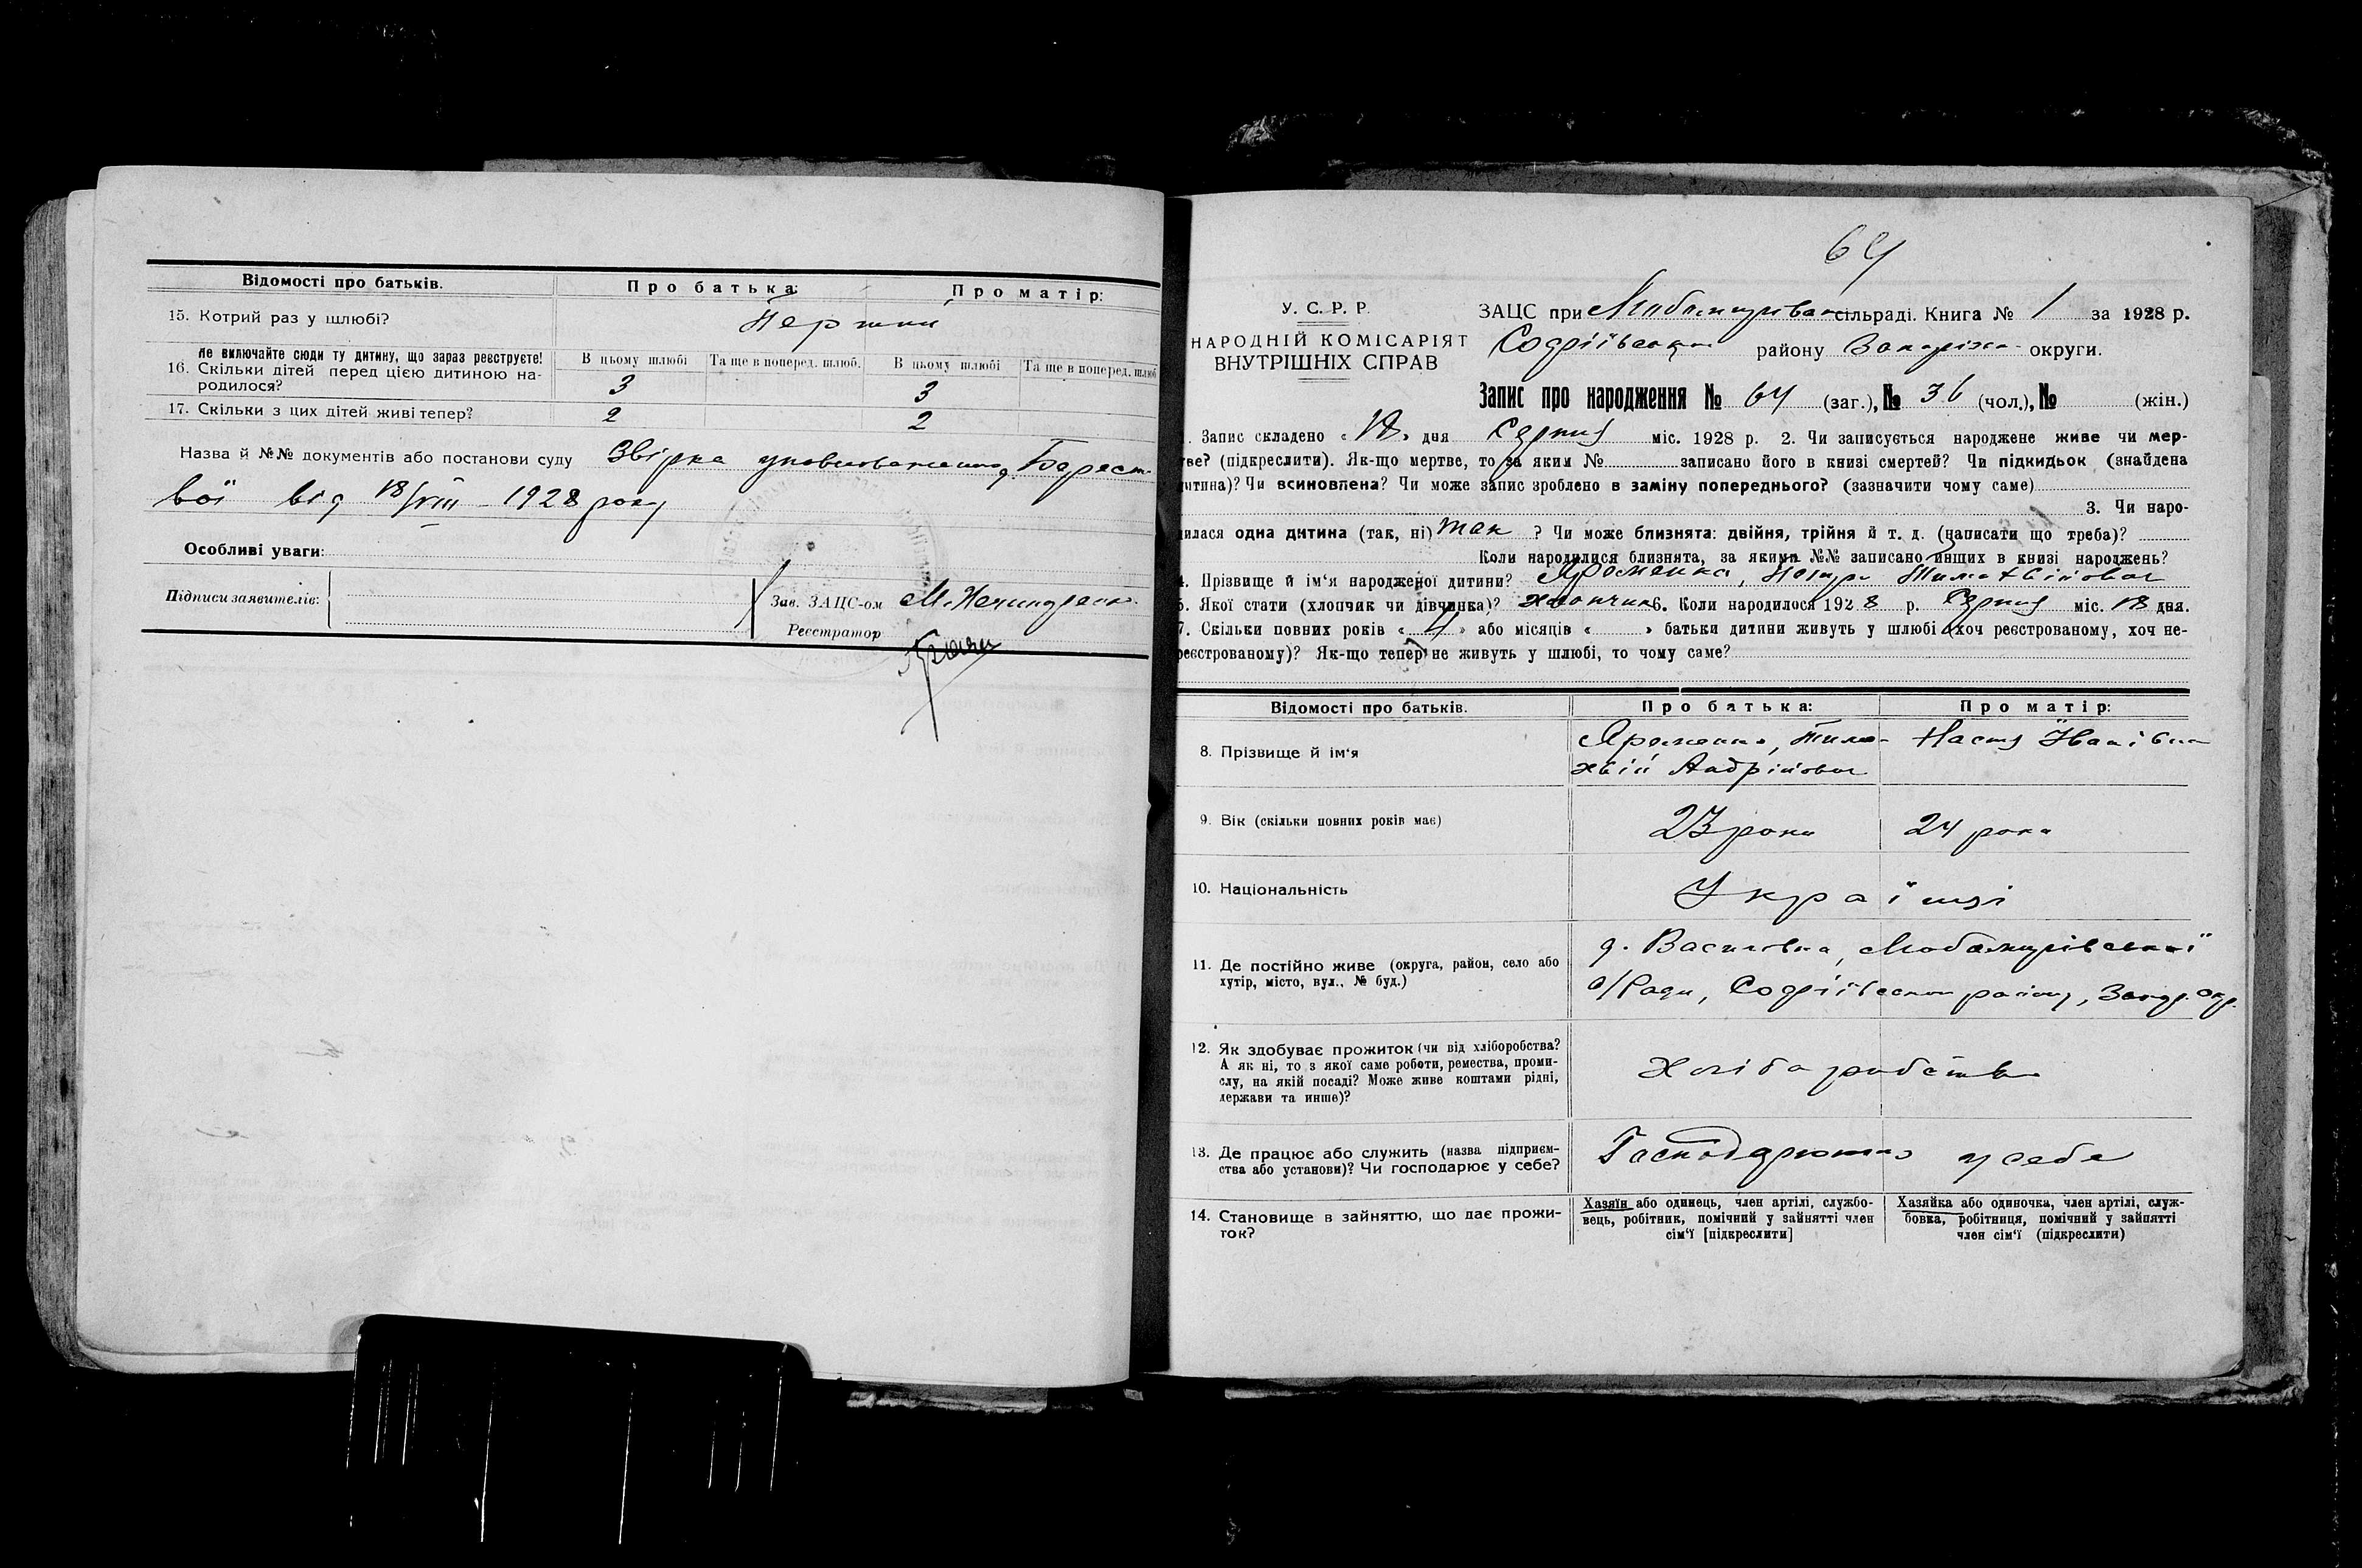 Відомості про батьків. Про батька: Про матір:
15. Котрий раз у шлюбі? Перший
Не включайте сюди ту дитину, що зараз реєструєте!
16. Скільки дітей перед цією дитиною народилося?
В цьому шлюбі Та ще в поперед. шлюб. В цьому шлюбі Та ще в поперед. шлюб
3 3
17. Скільки з цих дітей живі тепер? 2 2
Назва й №№ документів або постанови суду Звірка уповноваженого Берест-
вої від 18/VIII - 1928 року
Особливі уваги:
Підписи заявителів:
Зав. ЗАЦС-ом
Реєстратор
64
У. С. Р. Р.
НАРОДНІЙ КОМІСАРІЯТ
ВНУТРІШНІХ СПРАВ
ЗАЦС при сільраді. Книга № 1 за 1928 р.
району округи.
Запис про народження № 64 (заг.), № 36 (чол.), № (жін.)
1. Запис складено « 18 » дня Серпня міс. 1928 р. 2. Чи записується народжене живе чи мер-
тве? (підкреслити). Як-що мертве, то за яким № записано його в книзі смертей? Чи підкидьок (знайдена
дитина)? Чи всиновлена? Чи може запис зроблено в заміну попереднього? (зазначити чому саме)
3. Чи наро-
дилася одна дитина (так, ні) так ? Чи може близнята: двійня, трійня й т. д. (написати що треба)?
Коли народилися близнята, за якими №№ записано инших в книзі народжень?
4. Прізвище й ім'я народженої дитини? Яременко, Тимохвійович
5. Якої стати (хлопчик чи дівчинка)? хлопчик 6. Коли народилося 1928 р. Серпня міс. 18 дня.
7. Скільки повних років « 4 » або місяців « » батьки дитини живуть у шлюбі (хоч реєстрованому, хоч не-
реєстрованому)? Як-що тепер не живуть у шлюбі, то чому саме?
Відомості про батьків. Про батька: Про матір:
8. Прізвище й ім'я
Яременко, Тимо- Настя Іванівна
хвій Андрійович
9. Вік (скільки повних років має) 23 роки 24 роки
10. Національність Українці
11. Де постійно живе (округа, район, село або
хутір, місто, вул., № буд.)
д. Василівка,
с/Ради, району, Запор. окр.
12. Як здобуває прожиток (чи від хліборобства?
А як ні, то з якої саме роботи, ремества, проми-
слу, на якій посаді? Може живе коштами рідні,
держави та инше)?
Хліборобство
13. Де працює або служить (назва підприєм-
ства або установи)? Чи господарює у себе?
Господарюють у себе
14. Становище в зайняттю, що дає прожи-
ток?
Хазяїн або одинець, член артілі, службо-
вець, робітник, помічний у зайнятті член
сім'ї [підкреслити]
Хазяйка або одиночка, член артілі, служ-
бовка, робітниця, помічний у зайнятті
член сім'ї (підкреслити)